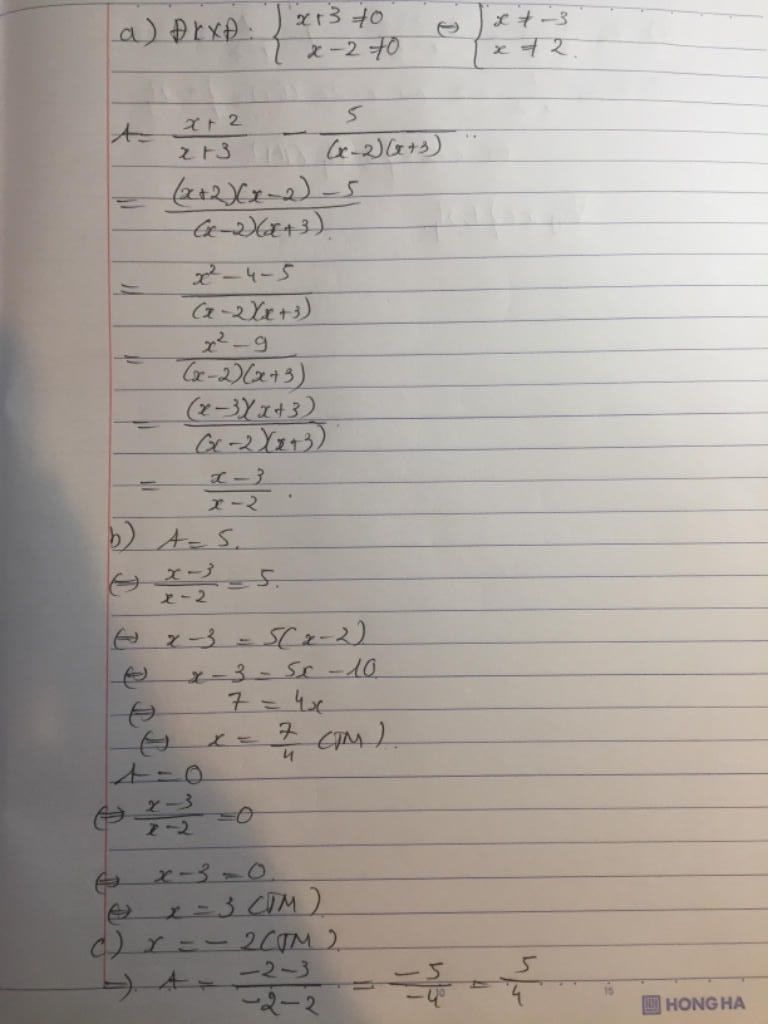 a) ĐKXĐ: { x+3 ≠ 0 ⇔ { x ≠ -3
x-2 ≠ 0 x ≠ 2.
A = (x+2)/(x+3) - 5/((x-2)(x+3))
= ((x+2)(x-2) - 5)/((x-2)(x+3))
= (x² - 4 - 5)/((x-2)(x+3))
= (x² - 9)/((x-2)(x+3))
= ((x-3)(x+3))/((x-2)(x+3))
= (x-3)/(x-2).
b) A = 5.
⇔ (x-3)/(x-2) = 5.
⇔ x-3 = 5(x-2)
⇔ x-3 = 5x-10
⇔ 7 = 4x
⇔ x = 7/4 (TM).
A = 0
⇔ (x-3)/(x-2) = 0
⇔ x-3 = 0.
⇔ x = 3 (TM)
c) x = -2 (TM)
⇒ A = (-2-3)/(-2-2) = (-5)/(-4) = 5/4
10 15 HONG HA